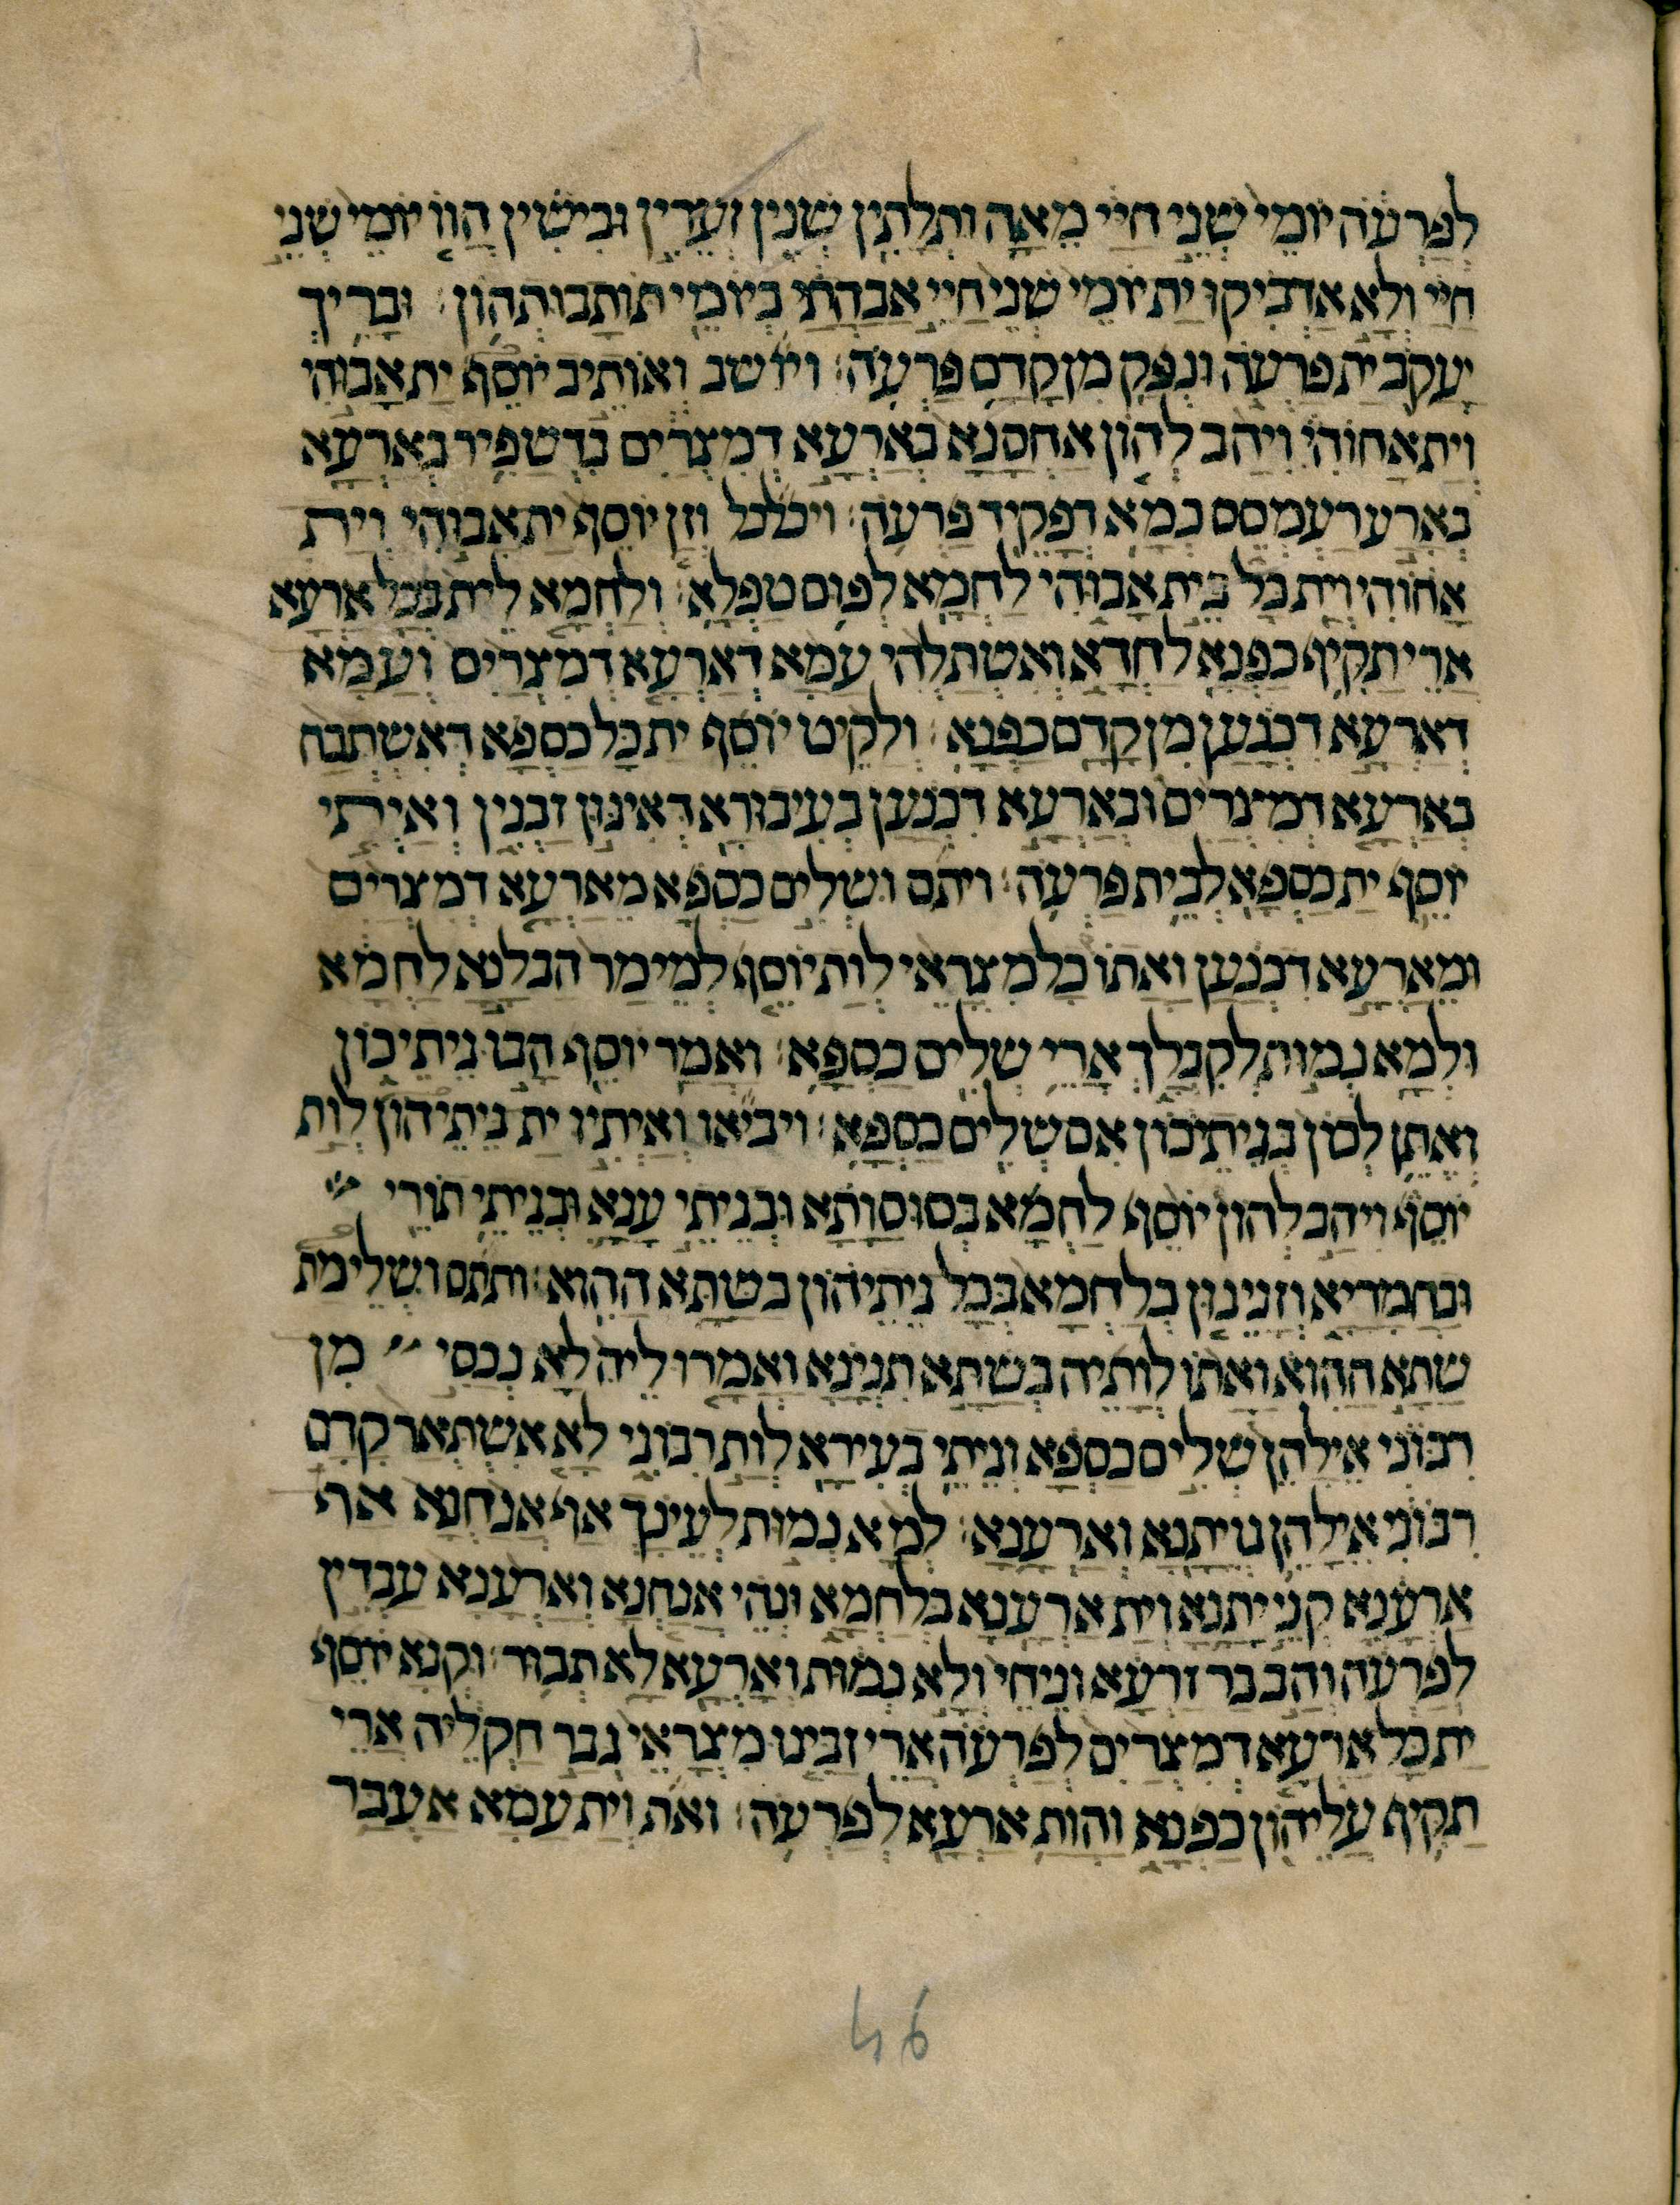 לְפַרְעֹה יוֹמֵי שְׁנֵי חַיַי מְאָה וּתְלָתִין שְׁנִין זְעֵרִין וּבִישִׁין הֲווֹ יוֹמֵי שְׁנֵי
חַיַי וְלָא אַדְבִּיקוּ יַת יוֹמֵי שְׁנֵי חַיֵי אֲבָהָתַי בְּיוֹמֵי תוֹתָבוּתְהוֹן׃ וּבָרֵיךְ
יַעֲקֹב יַת פַּרְעֹה וּנְפַק מִן קֳדָם פַּרְעֹה׃ ויושב וְאוֹתֵיב יוֹסֵף יַת אֲבוּהִי
וְיַת אֲחוֹהִי וִיהַב לְהוֹן אַחְסָנָא בְּאַרְעָא דְמִצְרַיִם בִּדְשַׁפִּיר בְּאַרְעָא
בְּאַרְעָ רַעְמְסֵס כְּמָא דְפַקֵּיד פַּרְעֹה׃ ויכלכל וְזָן יוֹסֵף יַת אֲבוּהִי וְיַת
אֲחוֹהִי וְיַת כָּל בֵּית אֲבוּהִי לַחְמָא לְפוּם טַפְלָא׃ וְלַחְמָא לֵית בְּכָל אַרְעָא
אֲרֵי תַקִּיף כַּפְנָא לַחְדָא וְאִשְׁתַּלְהִי עַמָּא דְאַרְעָא דְמִצְרַיִם וְעַמָּא
דְאַרְעָא דִכְנַעַן מִן קֳדָם כַּפְנָא׃ וְלַקֵּיט יוֹסֵף יַת כָּל כַּסְפָּא דְאִשְׁתְּכַח
בְּאַרְעָא דְמִצְרַיִם וּבְאַרְעָא דִכְנַעַן בְּעִיבוּרָא דְאִינּוּן זָבְנִין וְאַיְתִי
יוֹסֵף יַת כַּסְפָּא לְבֵית פַּרְעֹה׃ ויתם וּשְׁלִים כַּסְפָּא מֵאַרְעָא דְמִצְרַיִם
וּמֵאַרְעָא דִכְנַעַן וַאֲתוֹ כָל מִצְרָאֵי לְוָת יוֹסֵף לְמֵימַר הַב לַנָא לַחְמָא
וּלְמָא נְמוּת לְקִבְלָךְ אֲרֵי שְׁלִים כַּסְפָּא׃ וַאֲמַר יוֹסֵף הָבוּ גֵיתֵיכוֹן
וְאֶתֵּן לְכוֹן בְּגֵיתֵיכוֹן אִם שְׁלִים כַּסְפָּא׃ ויביאו וְאַיְתִיוּ יַת גֵּיתֵיהוֹן לְוָת
יוֹסֵף וִיהַב לְהוֹן יוֹסֵף לַחְמָא בְּסוּסָוָתָא וּבְגֵיתֵי עָנָא וּבְגֵיתֵי תוֹרֵי
וּבַחְמָרַיָא וְזָנֵינוּן בְּלַחְמָא בְּכָל גֵּיתֵיהוֹן בְּשַׁתָּא הַהִוא׃ ותתם וּשְׁלֵימַת
שַׁתָּא הַהִוא וַאֲתוֹ לְוָתֵיהּ בְּשַׁתָּא תִנְיֵנָא וַאֲמַרוּ לֵיהּ לָא נְכַסֵי מִן
רִבּוֹנִי אֱלָהֵן שְׁלִים כַּסְפָּא וְגֵיתֵי בְעִירָא לְוָת רִבּוֹנִי לָא אִשְׁתְּאַר קֳדָם
רִבּוֹנִי אֱלָהֵן גְּוִיָתַנָא וְאַרְעַנָא׃ לְמָא נְמוּת לְעֵינָךְ אַף אֲנַחְנָא אַף
אַרְעַנָא קְנֵי יָתַנָא וְיַת אַרְעַנָא בְּלַחְמָא וּנְהֵי אֲנַחְנָא וְאַרְעַנָא עַבְדִין
לְפַרְעֹה וְהַב בַּר זַרְעָא וְנֵיחֵי וְלָא נְמוּת וְאַרְעָא לָא תְבוּר׃ וּקְנָא יוֹסֵף
יַת כָּל אַרְעָא דְמִצְרַיִם לְפַרְעֹה אֲרֵי זַבִּינוּ מִצְרָאֵי גְּבַר חַקְלֵיהּ אֲרֵי
תַקִּיף עֲלֵיהוֹן כַּפְנָא וַהֲוַת אַרְעָא לְפַרְעֹה׃ ואת וְיַת עַמָּא אַעֲבַר
46